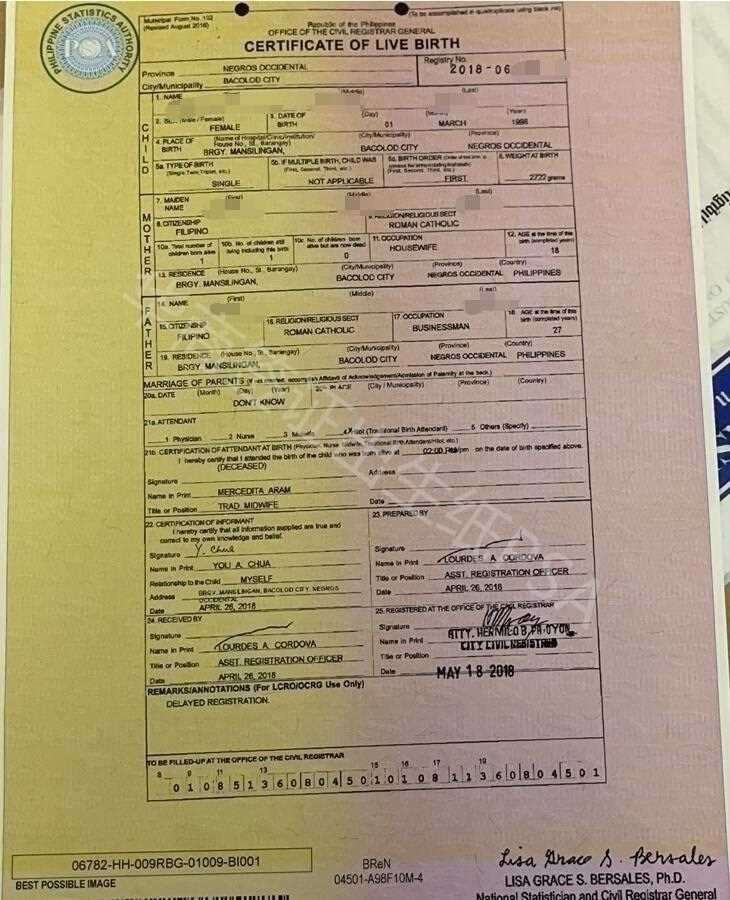 PHILIPPINE STATISTICS AUTHORITY
PSA
Municipal Form No. 102
(Revised August 2016)
(To be accomplished in quadruplicate using black ink)
Republic of the Philippines
OFFICE OF THE CIVIL REGISTRAR GENERAL
CERTIFICATE OF LIVE BIRTH
Province NEGROS OCCIDENTAL
Registry No.
2018-06
City/Municipality BACOLOD CITY
CHILD
1. NAME (Middle) (Last)
2. (Male / Female) FEMALE
3. DATE OF BIRTH (Day) (Year)
01 MARCH
4. PLACE OF BIRTH (Name of Hospital/Clinic/Institution/ House No., St., Barangay) (City/Municipality) (Province)
BRGY. MANSILINGAN, BACOLOD CITY NEGROS OCCIDENTAL
5a. TYPE OF BIRTH (Single, Twin, Triplet, etc.)
SINGLE
5b. IF MULTIPLE BIRTH, CHILD WAS (First, Second, Third, etc.)
NOT APPLICABLE
5c. BIRTH ORDER
(First, Second, Third, etc.)
FIRST
6. WEIGHT AT BIRTH
2722 grams
MOTHER
7. MAIDEN NAME (First) (Middle) (Last)
8. CITIZENSHIP
FILIPINO
9. RELIGION/RELIGIOUS SECT
ROMAN CATHOLIC
10a. Total number of children born alive
1
10b. No. of children still living including this birth
1
10c. No. of children born alive but are now dead
0
11. OCCUPATION
HOUSEWIFE
12. AGE at the time of this birth (completed years)
18
13. RESIDENCE (House No., St., Barangay) (City/Municipality) (Province) (Country)
BRGY. MANSILINGAN, BACOLOD CITY NEGROS OCCIDENTAL PHILIPPINES
FATHER
14. NAME (First) (Middle) (Last)
15. CITIZENSHIP
FILIPINO
16. RELIGION/RELIGIOUS SECT
ROMAN CATHOLIC
17. OCCUPATION
BUSINESSMAN
18. AGE at the time of this birth (completed years)
27
19. RESIDENCE (House No., St., Barangay) (City/Municipality) (Province) (Country)
BRGY. MANSILINGAN, BACOLOD CITY NEGROS OCCIDENTAL PHILIPPINES
MARRIAGE OF PARENTS (If not married, accomplish Affidavit of Acknowledgement/Admission of Paternity at the back.)
20a. DATE (Month) (Day) (Year) 20b. PLACE (City / Municipality) (Province) (Country)
DON'T KNOW
21a. ATTENDANT
1 Physician 2 Nurse 3 Midwife 4 X Hilot (Traditional Birth Attendant) 5 Others (Specify)
21b. CERTIFICATION OF ATTENDANT AT BIRTH (Physician, Nurse, Midwife, Traditional Birth Attendant/Hilot, etc.)
I hereby certify that I attended the birth of the child who was born alive at 02:00 PM am/pm on the date of birth specified above.
(DECEASED)
Signature
Address
Name in Print MERCEDITA ARAM
Title or Position TRAD. MIDWIFE
Date
22. CERTIFICATION OF INFORMANT
I hereby certify that all information supplied are true and correct to my own knowledge and belief.
Signature Y. Chua
Name in Print YOLI A. CHUA
Relationship to the Child MYSELF
Address BRGY. MANSILINGAN, BACOLOD CITY, NEGROS OCCIDENTAL
Date APRIL 26, 2018
23. PREPARED BY
Signature
Name in Print LOURDES A. CORDOVA
Title or Position ASST. REGISTRATION OFFICER
Date APRIL 26, 2018
24. RECEIVED BY
Signature
Name in Print LOURDES A. CORDOVA
Title or Position ASST. REGISTRATION OFFICER
Date APRIL 26, 2018
25. REGISTERED AT THE OFFICE OF THE CIVIL REGISTRAR
Signature
Name in Print ATTY. HERMILO B.
Title or Position CITY CIVIL REGISTRAR
Date MAY 18 2018
REMARKS/ANNOTATIONS (For LCRO/OCRG Use Only)
DELAYED REGISTRATION.
TO BE FILLED-UP AT THE OFFICE OF THE CIVIL REGISTRAR
8 9 11 13 15 16 17 19
0 1 0 8 5 1 3 6 0 8 0 4 5 0 1 0 1 0 8 1 1 3 6 0 8 0 4 5 0 1
06782-HH-009RBG-01009-BI001
BEST POSSIBLE IMAGE
BReN
04501-A98F10M-4
Lisa Grace S. Bersales
LISA GRACE S. BERSALES, Ph.D.
National Statistician and Civil Registrar General